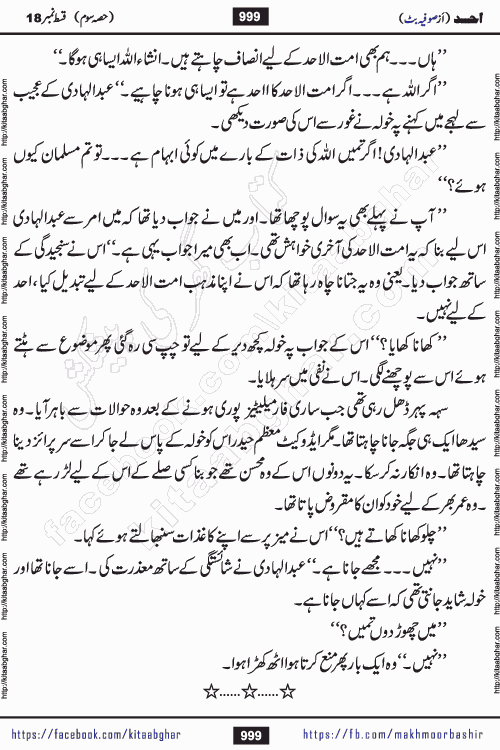 احد (از صوفیہ بٹ) 999 (حصہ سوم) قسط نمبر 18
’’ہاں ۔۔۔ ہم بھی امت الاحد کے لیے انصاف چاہتے ہیں۔ انشاء اللہ ایسا ہی ہوگا۔‘‘
’’اگر اللہ ہے ۔۔۔ اگر امت الاحد کا احد ہے تو ایسا ہی ہونا چاہیے۔‘‘ عبدالہادی کے عجیب
سے لہجے میں کہنے پہ خولہ نے غور سے اس کی صورت دیکھی۔
’’عبدالہادی! اگر تمہیں اللہ کی ذات کے بارے میں کوئی ابہام ہے ۔۔۔ تو تم مسلمان کیوں
ہوئے؟‘‘
’’آپ نے پہلے بھی یہ سوال پوچھا تھا۔ اور میں نے جواب دیا تھا کہ میں امر سے عبدالہادی
اس لیے بنا کہ یہ امت الاحد کی آخری خواہش تھی۔ اب بھی میرا جواب یہی ہے۔‘‘ اس نے سنجیدگی کے
ساتھ جواب دیا۔ یعنی وہ یہ جتانا چاہ رہا تھا کہ اس نے اپنا مذہب امت الاحد کے لیے تبدیل کیا، احد
کے لیے نہیں۔
’’کھانا کھایا؟‘‘ اس کے جواب پہ خولہ کچھ دیر کے لیے تو چپ سی رہ گئی پھر موضوع سے ہٹتے
ہوئے اس سے پوچھنے لگی۔ اس نے نفی میں سر ہلایا۔
سہ پہر ڈھل رہی تھی جب ساری فارمیلیٹیز پوری ہونے کے بعد وہ حوالات سے باہر آیا۔ وہ
سیدھا ایک ہی جگہ جانا چاہتا تھا۔ مگر ایڈوکیٹ معظم حیدر اس کو خولہ کے پاس لے جا کر اسے سرپرائز دینا
چاہتا تھا۔ وہ انکار نہ کر سکا۔ یہ دونوں اس کے وہ محسن تھے جو بنا کسی صلے کے اس کے لیے لڑ رہے تھے
۔ وہ عمر بھر کے لیے خود کو ان کا مقروض پاتا تھا۔
’’چلو کھانا کھاتے ہیں؟‘‘ اس نے میز پر سے اپنے کاغذات سنبھالتے ہوئے کہا۔
’’نہیں ۔۔۔ مجھے جانا ہے۔‘‘ عبدالہادی نے شائستگی کے ساتھ معذرت کی۔ اسے جانا تھا اور
خولہ شاید جانتی تھی کہ اسے کہاں جانا ہے۔
’’میں چھوڑ دوں تمہیں؟‘‘
’’نہیں۔‘‘ وہ ایک بار پھر منع کرتا ہوا اٹھ کھڑا ہوا۔
☆......☆......☆
https://facebook.com/kitaabghar 999 https://fb.com/makhmoorbashir
http://kitaabghar.com